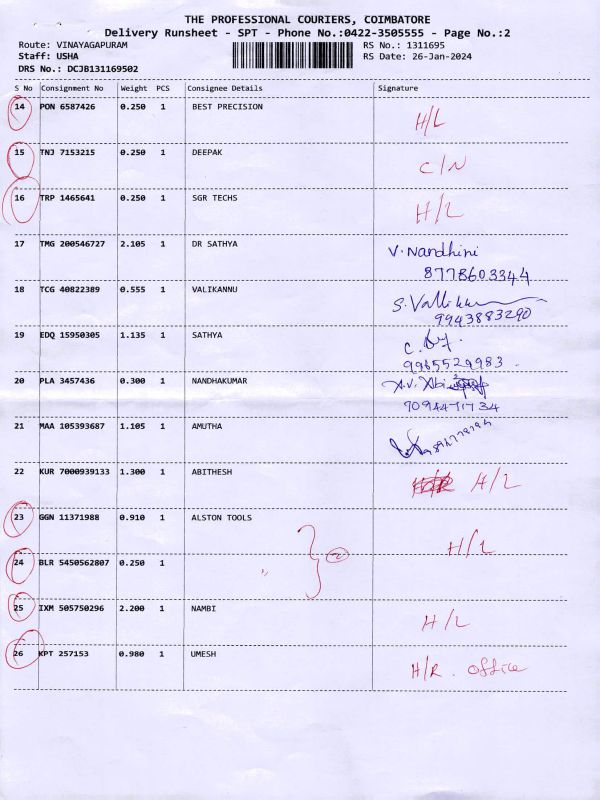 THE PROFESSIONAL COURIERS, COIMBATORE
Delivery Runsheet - SPT - Phone No.:0422-3505555 - Page No.:2
Route: VINAYAGAPURAM RS No.: 1311695
Staff: USHA RS Date: 26-Jan-2024
DRS No.: DCJB131169502
S No Consignment No Weight PCS Consignee Details Signature
14 PON 6587426 0.250 1 BEST PRECISION H/L
15 TNJ 7153215 0.250 1 DEEPAK C/N
16 TRP 1465641 0.250 1 SGR TECHS H/L
17 TMG 200546727 2.105 1 DR SATHYA V. Nandhini
8778603344
18 TCG 40822389 0.555 1 VALIKANNU S. Vallikannu
9943883290
19 EDQ 15950305 1.135 1 SATHYA C.
9985529983
20 PLA 3457436 0.300 1 NANDHAKUMAR A.V. Abi
7094471734
21 MAA 105393687 1.105 1 AMUTHA
22 KUR 7000939133 1.300 1 ABITHESH H/L
23 GGN 11371988 0.910 1 ALSTON TOOLS H/L
24 BLR 5450562807 0.250 1 " 2
25 IXM 505750296 2.200 1 NAMBI H/L
26 KPT 257153 0.980 1 UMESH H/R. office